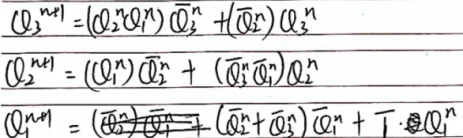 Q₃ⁿ⁺¹ = (Q₂ⁿQ₁ⁿ) Q̅₃ⁿ + (Q̅₂ⁿ) Q₃ⁿ
Q₂ⁿ⁺¹ = (Q₁ⁿ) Q̅₂ⁿ + (Q̅₃ⁿ Q̅₁ⁿ) Q₂ⁿ
Q₁ⁿ⁺¹ = (Q̅₂ⁿ + Q̅₃ⁿ) Q̅₁ⁿ + 1̅ · Q₁ⁿ